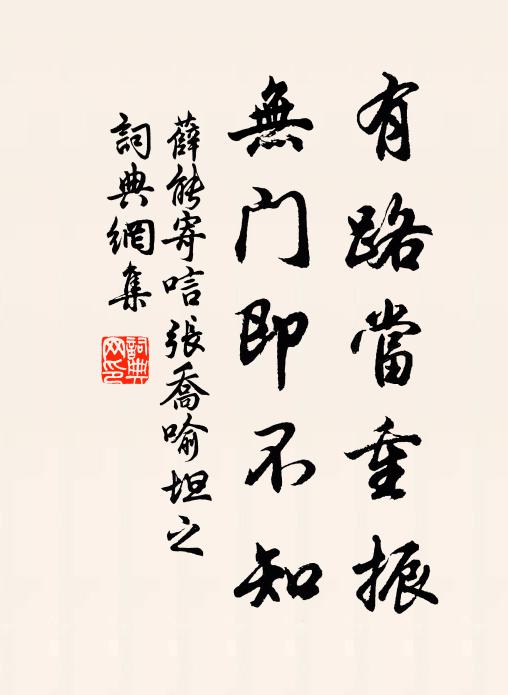 有路當重振
無门即不知
薛能寄唁張喬喻坦之
詞典網集
詞典网印